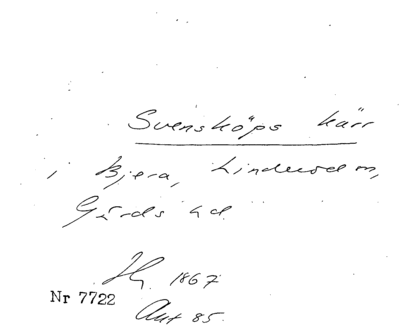 Svensköps kärr
i Bjera, Linderöd sn,
Gärds hd.
Hg. 1867
Nr 7722
Aut 85.